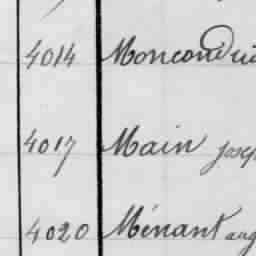 4014 Moncond
4017 Main Jose
4020 Ménant aug